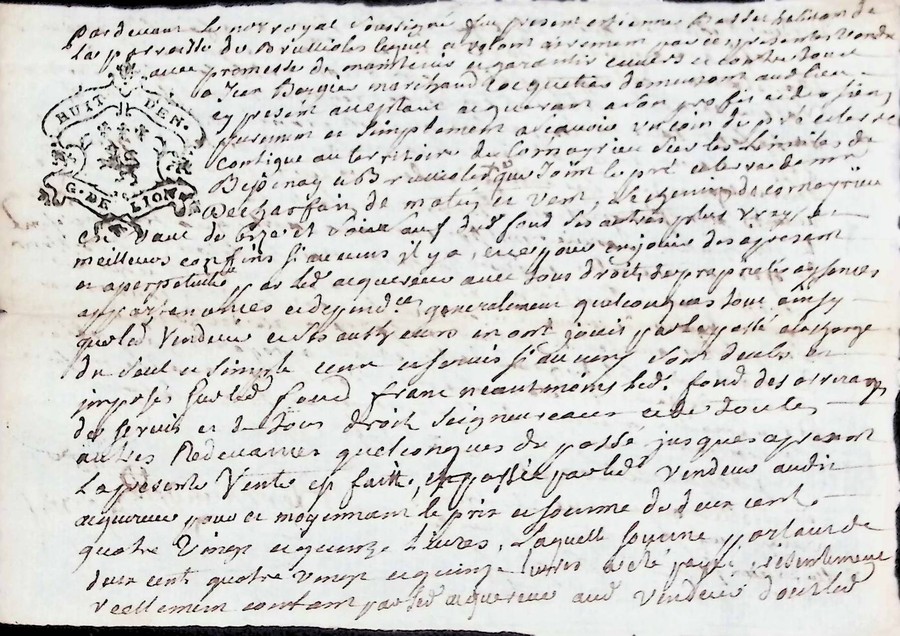 Pardevant le no.re royal soussigné fut present estienne habitant de
la parroisse de Brussioles lequel a vendu purement par ces presentes vend
avec promesse de maintenir et garantir envers et contre tous
a Jean marchand demeurant audit lieu
cy present acceptant acquerant a son profit et des siens
purement et simplement a sçavoir un coin de pré
contigue au territoire du Cornayrieu sur les limites de
Bessenay et Brussioles que joint le pré et terre de mr
de matin et vent, le chemin de cornayrieu
HUIT DEN.
G. DE LION
de bize et soir sauf dud. fond ses autres plus vrays et
meilleurs confins si aucuns il y a, et jouir des apresent
et a perpetuité par led. acquereur avec tous droits de proprieté aysances
appartenances et depend.ces generalement quelconques tout ainsy
que led. Vendeur et ses autheurs en ont jouis par le passé a la charge
du seul et simple cens et servis si aucuns sont deubs et
imposés sur led. fond franc neantmoins led. fond des arrerages
de servis et de tous droits seigneuriaux et de toutes
autres Redevances quelconques du passé jusques apresent
La presente Vente est faitte, et passée par led. Vendeur audit
acquereur pour et moyennant le prix et somme de deux cent
quatre Vingt et quinze Livres, laquelle somme de
deux cent quatre vingt et quinze livres a eté payé presentement
reellement contant par led. acquereur aud. Vendeur led.